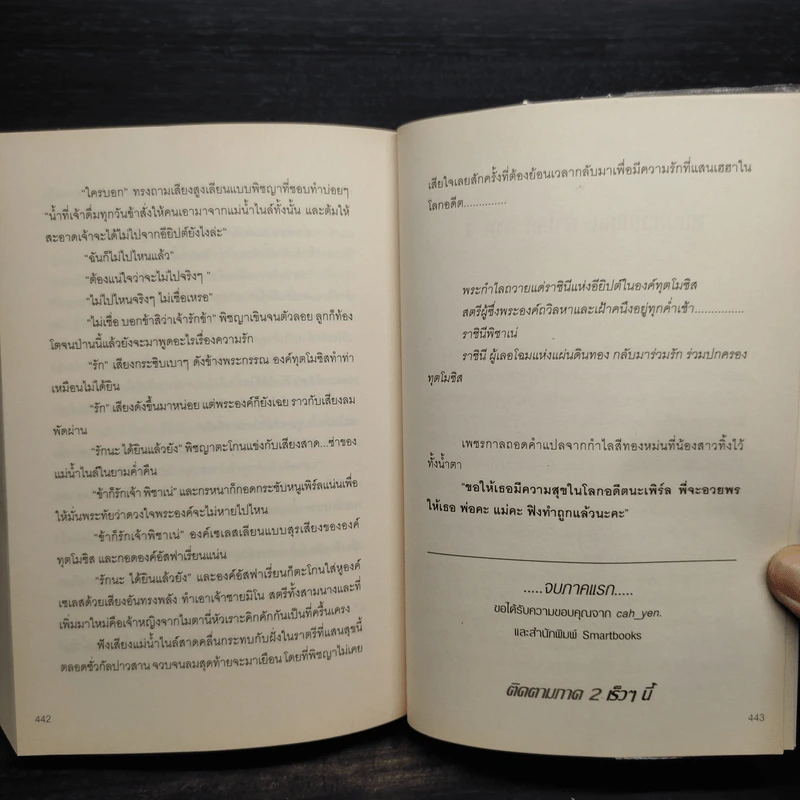 "ใครบอก" ทรงถามเสียงสูงเลียนแบบพิชญาที่ชอบทำบ่อยๆ
"น้ำที่เจ้าดื่มทุกวันข้าสั่งให้คนเอามาจากแม่น้ำไนล์ทั้งนั้น และต้มให้
สะอาดเจ้าจะได้ไม่ไปจากอียิปต์ยังไงล่ะ"
"ฉันก็ไม่ไปไหนแล้ว"
"ต้องแน่ใจว่าจะไม่ไปจริงๆ "
"ไม่ไปไหนจริงๆ ไม่เชื่อเหรอ"
"ไม่เชื่อ บอกข้าสิว่าเจ้ารักข้า" พิชญาเขินจนตัวลอย ลูกก็ท้อง
โตจนป่านนี้แล้วยังจะมาพูดอะไรเรื่องความรัก
"รัก" เสียงกระซิบเบาๆ ดังข้างพระกรรณ องค์ทุตโมซิสทำท่า
เหมือนไม่ได้ยิน
"รัก" เสียงดังขึ้นมาหน่อย แต่พระองค์ก็ยังเฉย ราวกับเสียงลม
พัดผ่าน
"รักนะ ได้ยินแล้วยัง" พิชญาตะโกนแข่งกับเสียงสาด...ซ่าของ
แม่น้ำไนล์ในยามค่ำคืน
"ข้าก็รักเจ้า พิชาเน่" และกรหนาก็กอดกระชับหนูเพิร์ลแน่นเพื่อ
ให้มั่นพระทัยว่าดวงใจพระองค์จะไม่หายไปไหน
"ข้าก็รักเจ้าพิชาเน่" องค์เซเลสเลียนแบบสุรเสียงขององค์
ทุตโมซิส และกอดองค์อัสฟาเรี่ยนแน่น
"รักนะ ได้ยินแล้วยัง" และองค์อัสฟาเรี่ยนก็ตะโกนใส่หูองค์
เซเลสด้วยเสียงอันทรงพลัง ทำเอาเจ้าชายมิโน สตรีทั้งสามนางและที่
เพิ่มมาใหม่คือเจ้าหญิงจากไมตานี่หัวเราะคิกคักกันเป็นที่ครื้นเครง
ฟังเสียงแม่น้ำไนล์สาดคลื่นกระทบกับฝั่งในราตรีที่แสนสุขนี้
ตลอดชั่วกัลปาวสาน จวบจนลมสุดท้ายจะมาเยือน โดยที่พิชญาไม่เคย
442
เสียใจเลยสักครั้งที่ต้องย้อนเวลากลับมาเพื่อมีความรักที่แสนเฮฮาใน
โลกอดีต..............
พระกำไลถวายแด่ราชินีแห่งอียิปต์ในองค์ทุตโมซิส
สตรีผู้ซึ่งพระองค์ถวิลหาและเฝ้าคนึงอยู่ทุกค่ำเช้า...............
ราชินีพิชาเน่
ราชินี ผู้เลอโฉมแห่งแผ่นดินทอง กลับมาร่วมรัก ร่วมปกครอง
ทุตโมซิส
เพชรกาลถอดคำแปลจากกำไลสีทองหม่นที่น้องสาวทิ้งไว้
ทั้งน้ำตา
"ขอให้เธอมีความสุขในโลกอดีตนะเพิร์ล พี่จะอวยพร
ให้เธอ พ่อคะ แม่คะ ฟิงทำถูกแล้วนะคะ"
.....จบภาคแรก.....
ขอได้รับความขอบคุณจาก cah_yen.
และสำนักพิมพ์ Smartbooks
ติดตามภาค 2 เร็วๆ นี้
443